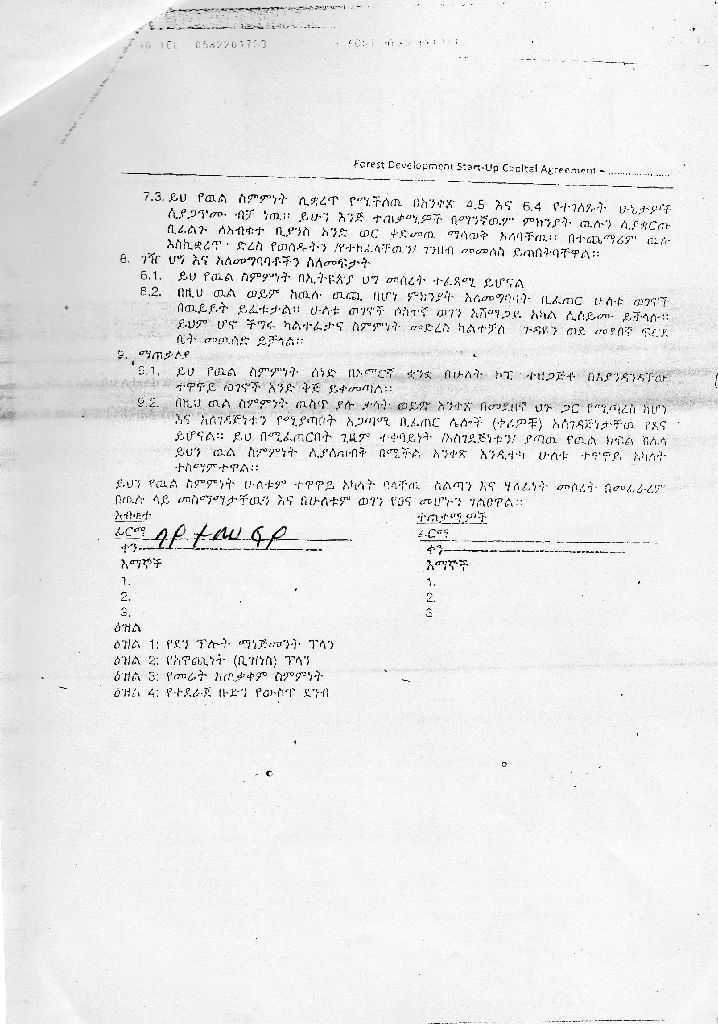 TEL 0582203700
Forest Development Start-Up Capital Agreement –
7.3. ይህ የዉል ስምምነት ሊቋረጥ የሚችለዉ በአንቀጽ 4.5 እና 6.4 የተገለጹት ሁኔታዎች
ሲያጋጥሙ ብቻ ነዉ። ይሁን እንጅ ተጠቃሚዎች በማንኛዉም ምክንያት ዉሉን ሲያቋርጡ
ቢፈልጉ ለአብቁተ ቢያንስ አንድ ወር ቀድመዉ ማሳወቅ አለባቸዉ። በተጨማሪም ዉሉ
እስኪቋረጥ ድረስ የወሰዱትን /የተከፈላቸዉን/ ገንዘብ መመለስ ይጠበቅባቸዋል።
8. ገዥ ህግ እና አለመግባባቶችን ስለመፍታት
8.1. ይህ የዉል ስምምነት በኢትዮጵያ ህግ መሰረት ተፈጻሚ ይሆናል
8.2. በዚህ ዉል ወይም ከዉሉ ዉጪ በሆነ ምክንያት አለመግባባት ቢፈጠር ሁለቱ ወገኖች
በዉይይት ይፈቱታል። ሁለቱ ወገኖች ሶስተኛ ወገን አሸማጋይ አካል ሊሰይሙ ይችላሉ።
ይህም ሆኖ ችግሩ ካልተፈታና ስምምነት መድረስ ካልተቻለ ጉዳዩን ወደ መደበኛ ፍርድ
ቤት መዉሰድ ይቻላል።
9. ማጠቃለያ
9.1. ይህ የዉል ስምምነት ሰነድ በአማርኛ ቋንቋ በሁለት ኮፒ ተዘጋጅቶ በእያንዳንዳቸዉ
ተዋዋይ ወገኖች እንድ ቅጅ ይቀመጣል።
9.2. በዚህ ዉል ስምምነት ዉስጥ ያሉ ቃላት ወይም አንቀጽ በመደበኛ ህጉ ጋር የሚጣረስ ከሆነ
እና አስገዳጅነቱን የሚያጣበት አጋጣሚ ቢፈጠር ሌሎች (ቀሪዎቹ) አስገዳጅነታቸዉ የጸና
ይሆናል። ይህ በሚፈጠርበት ጊዜም ተቀባይነት /አስገዳጅነቱን/ ያጣዉ የዉል ክፍል በሌላ
ይህን ዉል ስምምነት ሊያጠብቅ በሚችል አንቀጽ እንዲተካ ሁለቱ ተዋዋይ አካላት
ተስማምተዋል።
ይህን የዉል ስምምነት ሁለቱም ተዋዋይ አካላት ባላቸዉ ስልጣን እና ሃላፊነት መሰረት በመፈራረም
በዉሉ ላይ መስማማታቸዉን እና በሁለቱም ወገን የፀና መሆኑን ገልፀዋል።
አብቁተ ተጠቃሚዎች
ፊርማ ፊርማ
ቀን ቀን
እማኞች እማኞች
1. 1.
2. 2.
3. 3
ዕዝል
ዕዝል 1: የደን ፕሎት ማነጅመንት ፕላን
ዕዝል 2: የአዋጪነት (ቢዝነስ) ፕላን
ዕዝል 3: የመሬት አጠቃቀም ስምምነት
ዕዝል 4: የተደራጀ ቡድን የውስጥ ደንብ